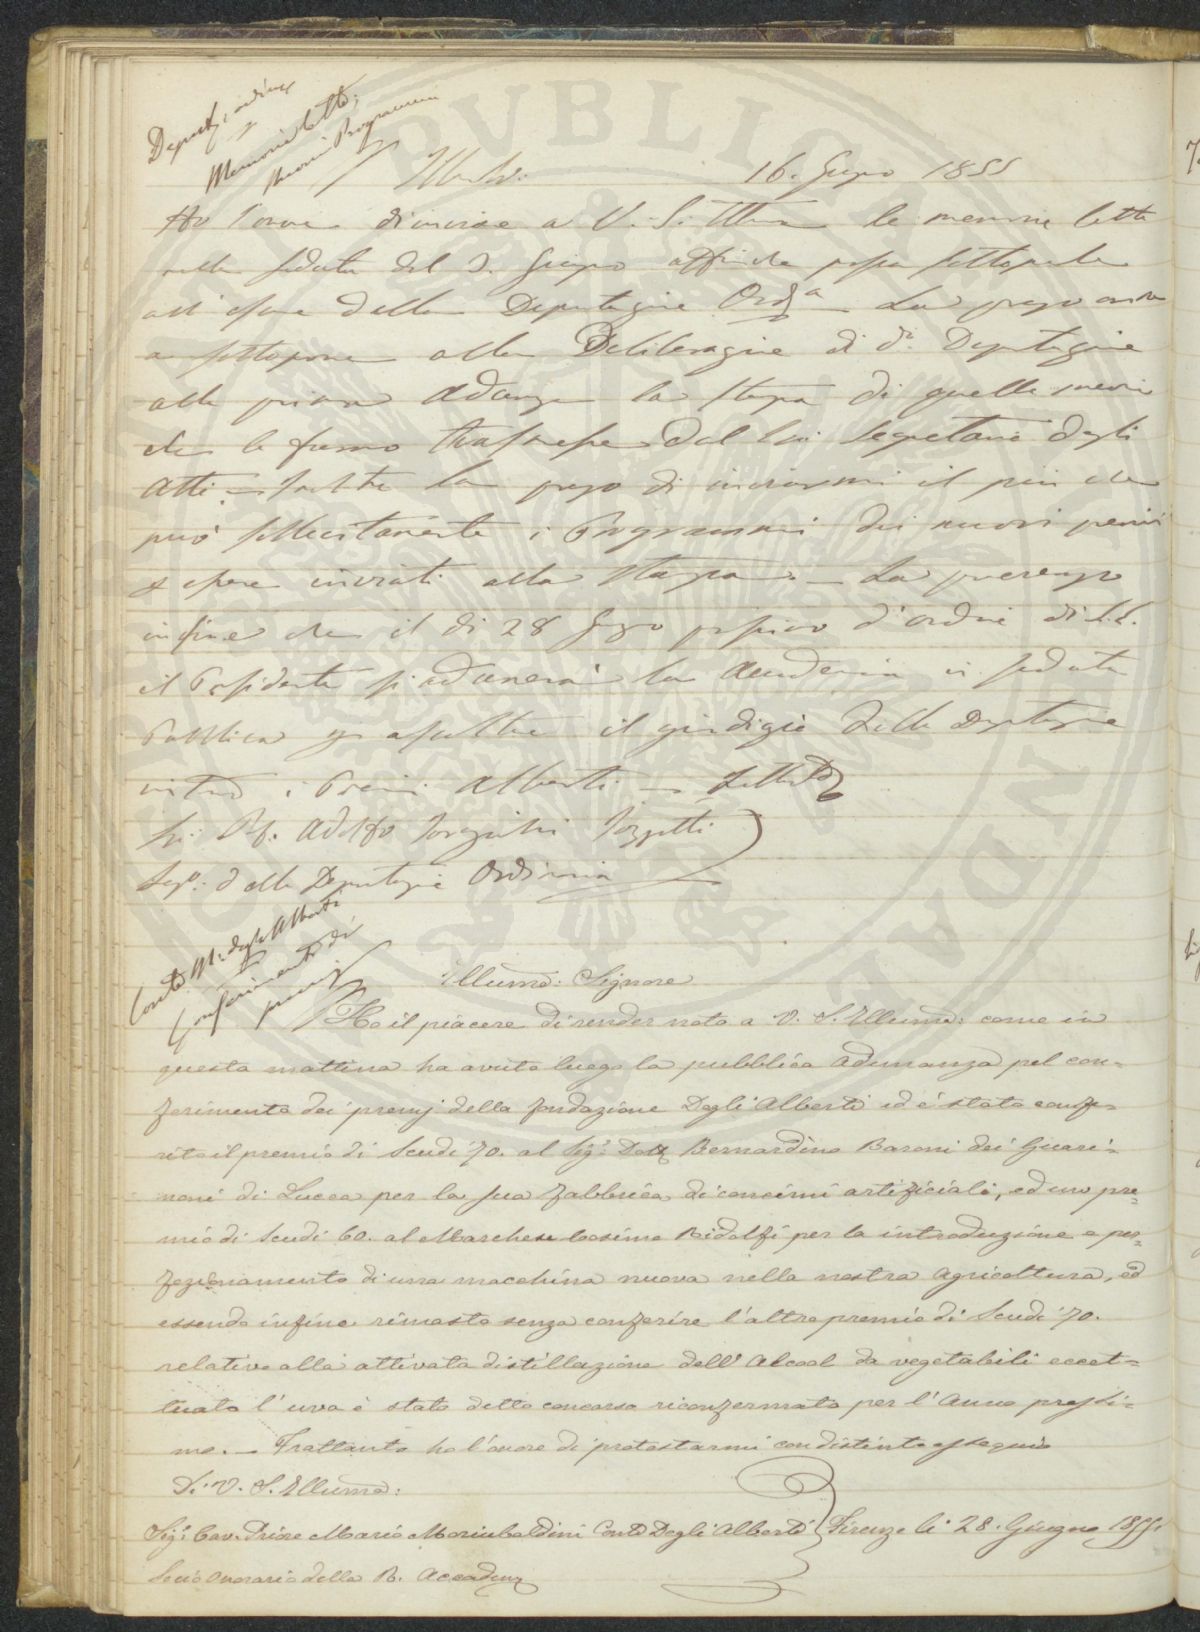 Deputaz. ordina
p
Memorie lette;
nuovi Programmi
Illmo Sr: 16. Giugno 1855
Ho l'onore di inviare a V. S. Illma le memorie lette
nella seduta del 3. Giugno affinche possa sottoporle
all' esame della Deputazione Ordia La prego ancora
a sottoporre alla Deliberazione di da. Deputazione
alla prima adunza la stampa di quelle memorie
che le furono trasmesse dal Sr Segretario degli
Atti – la prego di inviarmi il più che
può sollecitamente i Programmi dei nuovi premi
inviati alla stampa. – La prevengo
infine che il di 28 Giugno d'ordine di S. E.
il Presidente si adunerà la Accademia in seduta
Pubblica p ascoltare il giudizio della Deputazione
intorno i Premi Alberti –
Sr: Prof. Adolfo Targioni Tozzetti
Sego: della Deputazione Ordinaria
Conte M: degli Alberti
p
Conferimento di
premj
Illumo: Signore
Ho il piacere di render noto a V. S. Illuma: come in
questa mattina ha avuto luogo la pubblica adunanza pel con=
ferimento dei premj della fondazione Degli Alberti ed è stato confe-
rito il premio di Scudi 70. al Sigr. Dott Bernardino Baroni dei Guari=
moni di Lucca per la sua fabbrica di concimi artificiali, ed uno pre=
mio di Scudi 60. al Marchese Cosimo Ridolfi per la introduzione e per=
fezionamento di una macchina nuova nella nostra agricoltura, ed
essendo infine rimasto senza conferire l'altro premio di Scudi 70.
relativo alla attivata distillazione dell' Alcool da vegetabili eccet=
tuato l' uva è stato detto concorso riconfermato per l' Anno prossi=
mo. – Frattanto ho l'onore di protestarmi con distinto ossequio
Di V. S. Illuma:
Sigr Cav. Priore Mario Moriubaldini Conte Degli Alberti Firenze li 28. Giugno 1855.
Socio onorario della R. Accadema